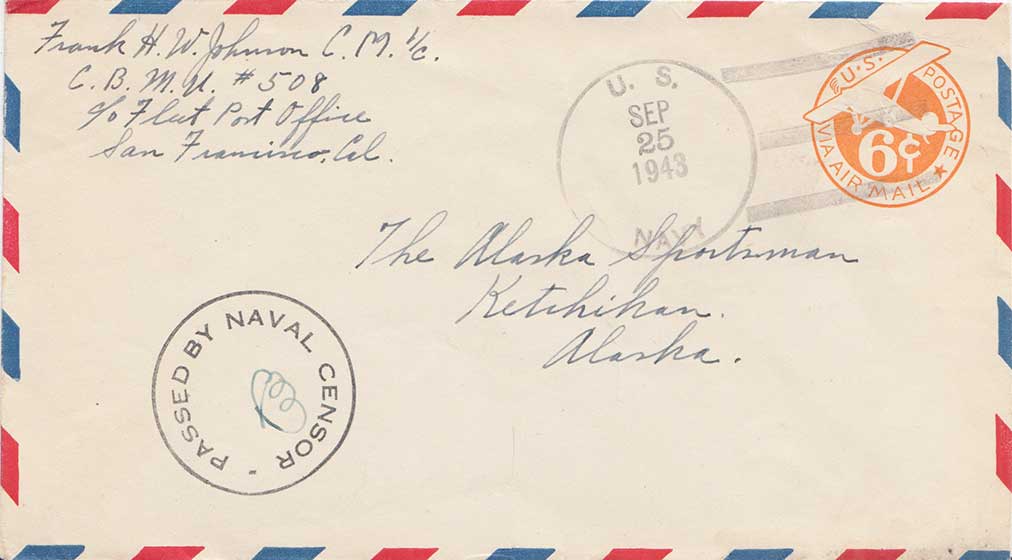 Frank H. W. Johnson C. M. 1/c.
C. B. M. U. # 508
c/o Fleet Post Office
San Francisco, Cal.
U. S.
SEP
25
1943
NAVY
U.S. POSTAGE
6¢
VIA AIR MAIL
The Alaska Sportsman
Ketchikan.
Alaska.
PASSED BY NAVAL CENSOR